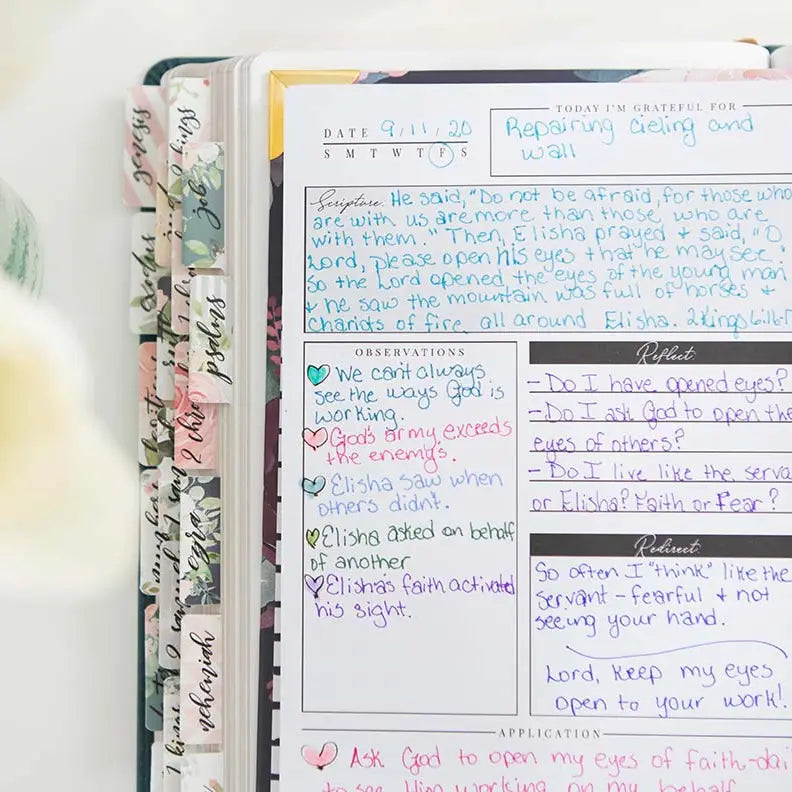 genesis
exodus
2 kings
job
psalms
ruth
2 chro
ezra
nehemiah
TODAY I'M GRATEFUL FOR
DATE 9/11/20
S M T W T F S
Repairing cieling and
wall
Scripture: He said, "Do not be afraid, for those who
are with us are more than those who are
with them." Then, Elisha prayed + said, "O
Lord, please open his eyes that he may see."
So the Lord opened the eyes of the young man
+ he saw the mountain was full of horses +
chariots of fire all around Elisha. 2 Kings 6:16-1
OBSERVATIONS
We can't always
see the ways God is
working.
God's army exceeds
the enemy's.
Elisha saw when
others didn't.
Elisha asked on behalf
of another
Elisha's faith activated
his sight.
Reflect:
- Do I have opened eyes?
- Do I ask God to open the
eyes of others?
- Do I live like the serva
or Elisha? Faith or Fear?
Redirect:
So often I "think" like the
servant - fearful + not
seeing your hand.
Lord, keep my eyes
open to your work!
APPLICATION
Ask God to open my eyes of faith-dai
to see Him working on my behalf